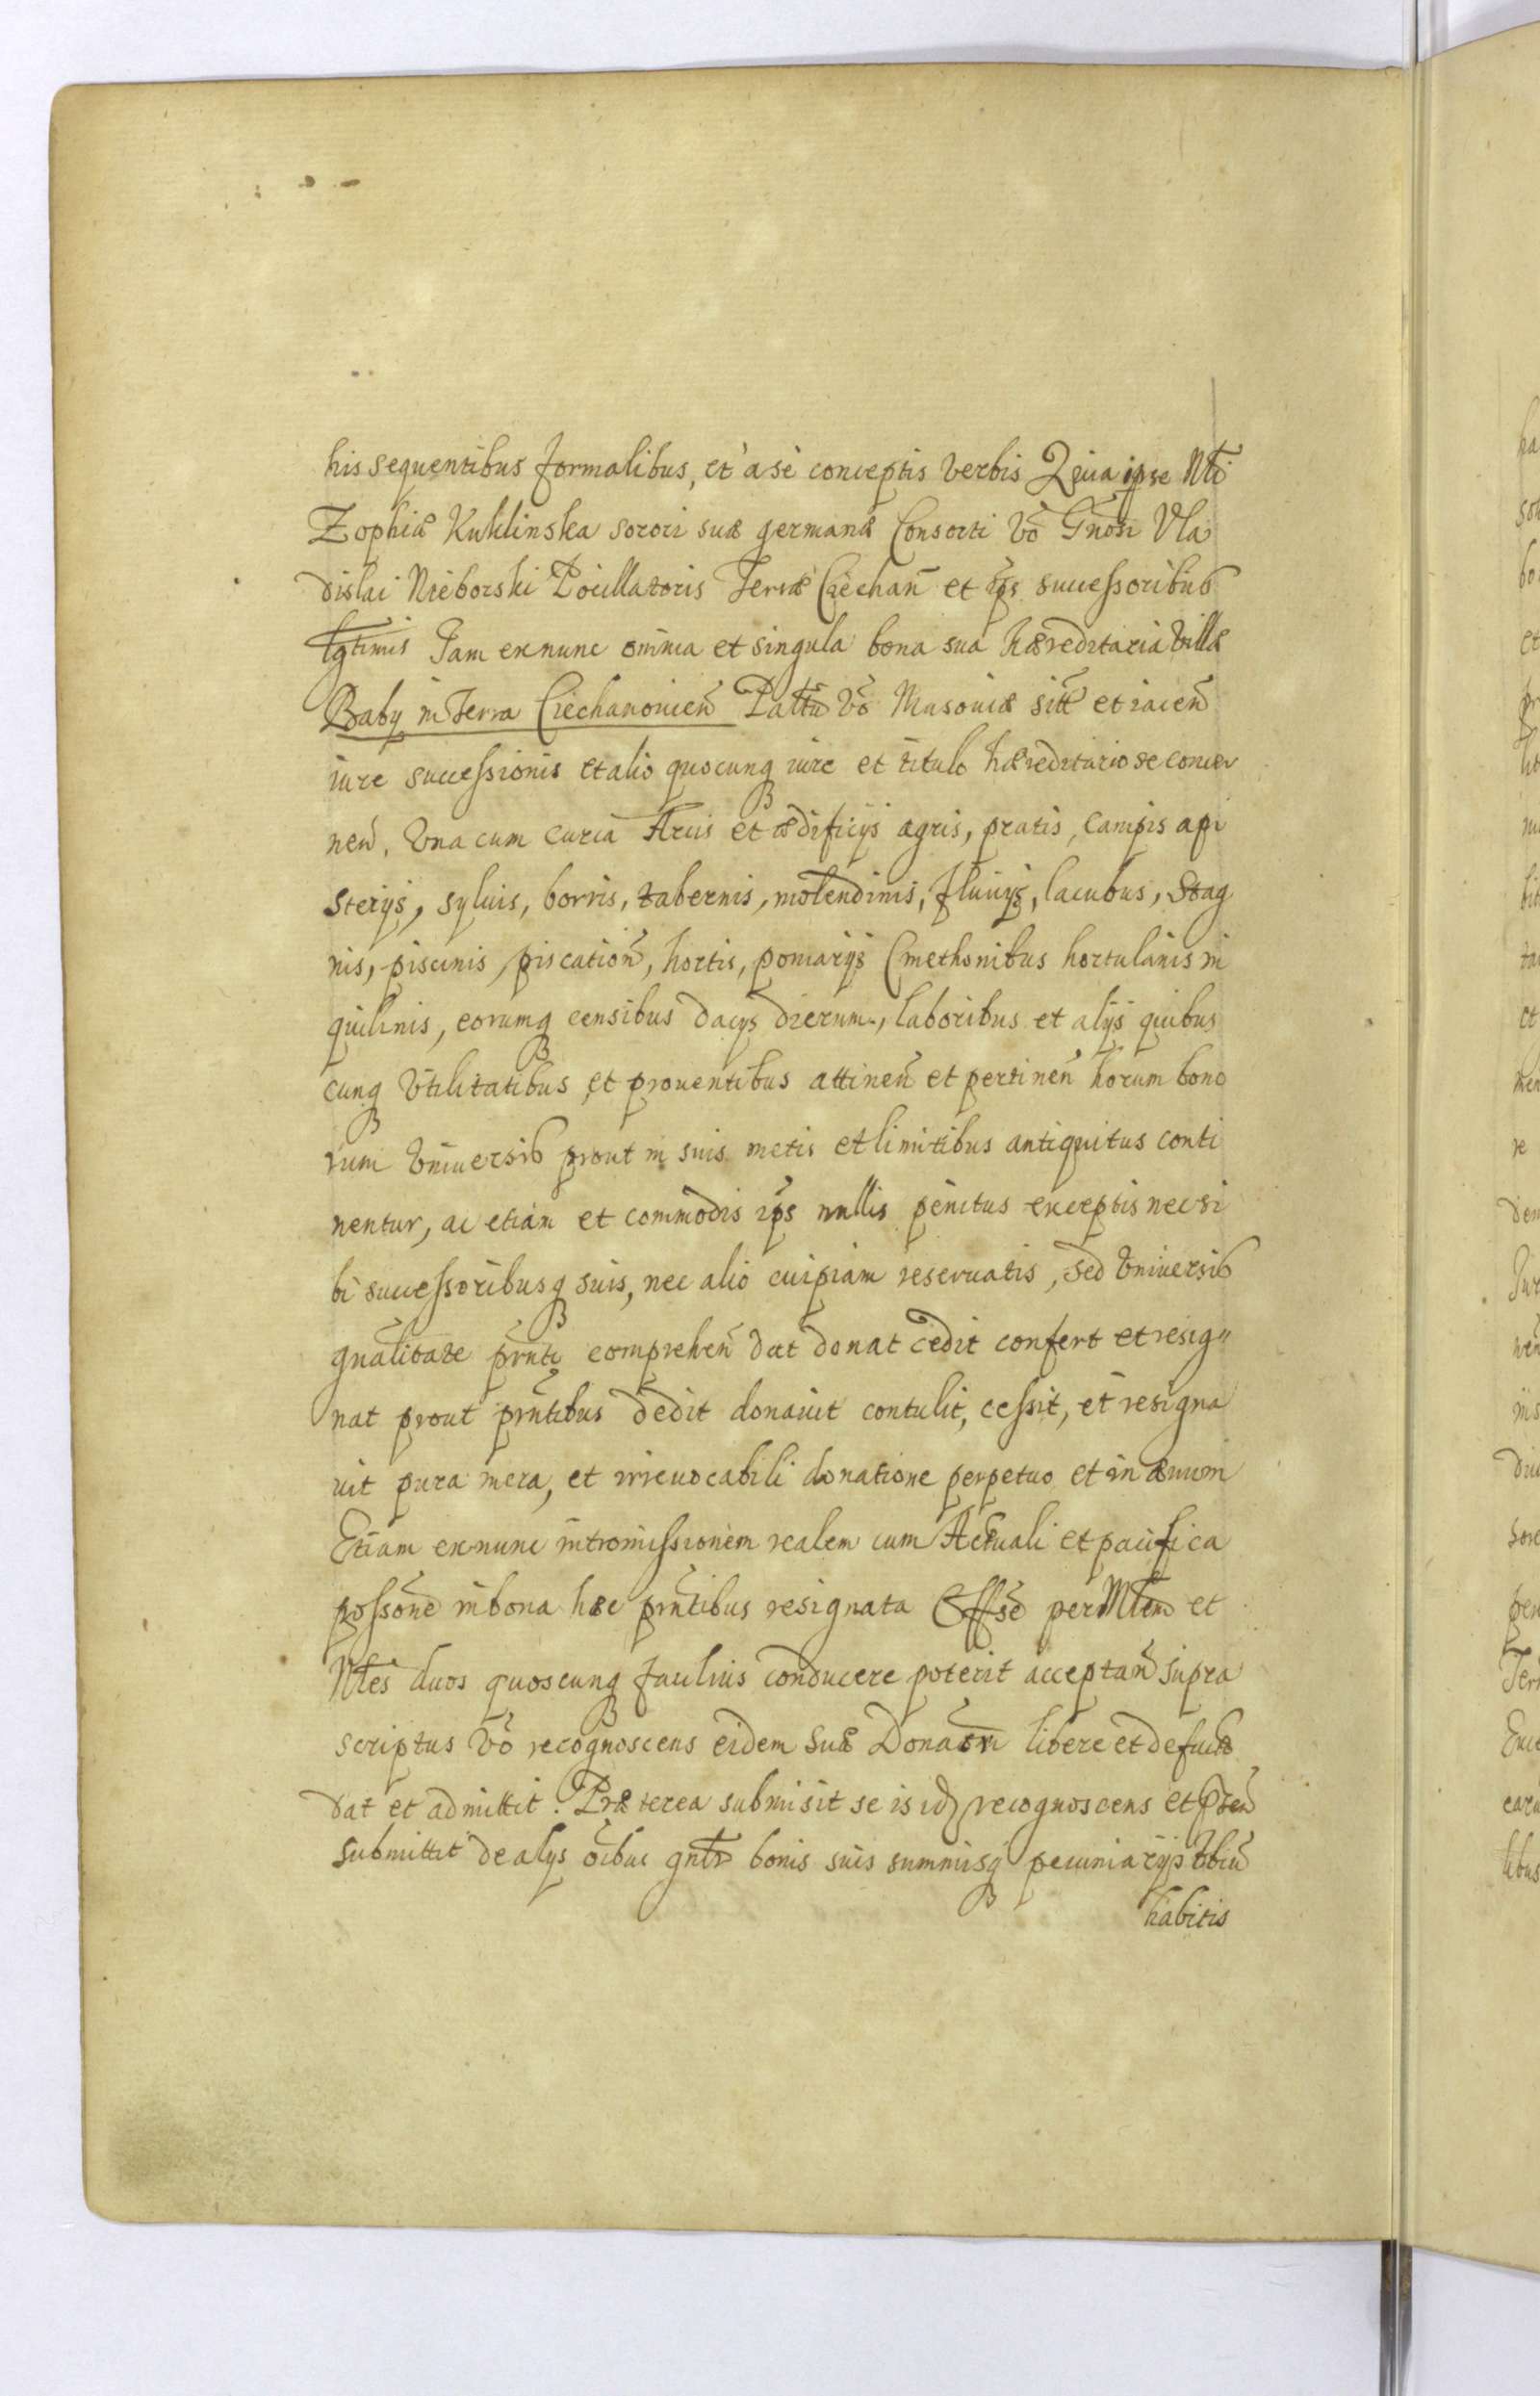 his sequentibus formalibus, et a se conceptis verbis Quia ipse Nbi
Zophiæ Kuklinska sorori suæ germanæ Consorti vō Gnōsi Vla
dislai Nieborski Pocillatoris Terræ Ciechan̄ et ip̄s successoribus
lgtimis Jam ex nunc om̄nia et singula bona sua hæreditaria villæ
Baby in Terra Ciechanonien̄ Palttu vō Masoviæ sitt et iacen̄
iure successionis et alio quocunq iure et titulo hæreditario se concer
nen̄. Vna cum curia Arcis et ædificijs agris, pratis, campis api
sterijs, syluis, borris, tabernis, molendinis, fluuijs, lacubus, Stag
nis, piscinis, piscation̄, hortis, pomarijs Cmethonibus hortulanis in
quilinis, eorumq censibus dacijs dierum, laboribus et alijs quibus
cunq vtilitatibus et prouentibus attinen̄ et pertinen̄ horum bono
rum vniuersis prout in suis metis et limitibus antiquitus conti
nentur, ac etiam et commodis ip̄s nullis penitus exceptis nec si
bi successoribusq suis, nec alio cuipiam reseruatis, sed vniuersis
gnālitate prn̄ti comprehen̄ dat donat cedit confert et resig=
nat prout prn̄tibus dedit donauit contulit, cessit, et resigna
uit pura mera, et irreuocabili donatione perpetuo et in æuum
Etiam ex nunc intromissionem realem cum Actuali et pacifica
possōne in bona hæc prn̄tibus resignata per Mlem et
Nles duos quoscunq facilius conducere poterit acceptan̄ supra
scriptus vō recognoscens eidem suæ Donatri libere et de facto
dat et admittit. Præterea submisit se is idem recognoscens et prn̄
submittit de alijs oībus gnlr bonis suis summisq pecuniarijs vbiu
habitis